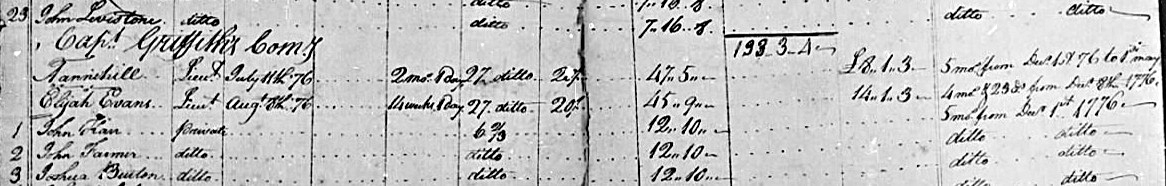 ditto 7 „ 16 „ 8 ditto ditto
23 John Levistone ditto ditto 7 „ 16 „ 8 ditto ditto
Capt Griffiths Comy 193 „ 3 „ 4
Tannehill Lieut July 11th 76 2 mos 1 day 27 ditto 20/. 47 „ 5 „ £8 „ 1 „ 3 5 mos from Decr 1st 76 to 1st may
Elijah Evans Lieut Augt 8th 76 14 weeks 1 day 27 ditto 20/. 45 „ 9 „ 14 „ 1 „ 3 4 mos & 23 ds from Decr 8th 1776
1 John Karr private 6 2/3 12 „ 10 „ 5 mos from Decr 1st 1776
2 John Farmer ditto ditto 12 „ 10 „ ditto ditto
3 Joshua Burton ditto ditto 12 „ 10 „ ditto ditto
ditto ditto